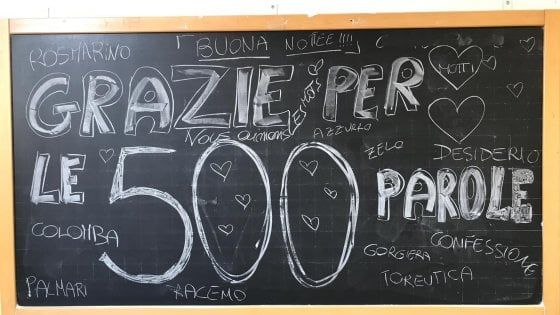 ROSMARINO
BUONA NOTTE!!!!
GRAZIE PER
MOTTI
AZZURRO
ZELO
DESIDERIO
LE 500 PAROLE
COLOMBA
CONFESSIONE
GORGIERA
TOREUTICA
PALMARI
RACEMO